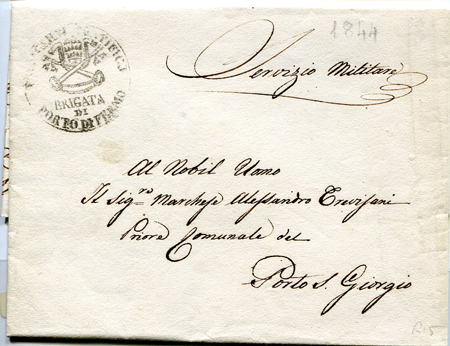 1844
Servizio Militare
BRIGATA
DI
PORTO DI FERMO
Al Nobil Uomo
Il Sig.ro Marchese Alessandro Trevisani
Priore Comunale del
Porto S. Giorgio